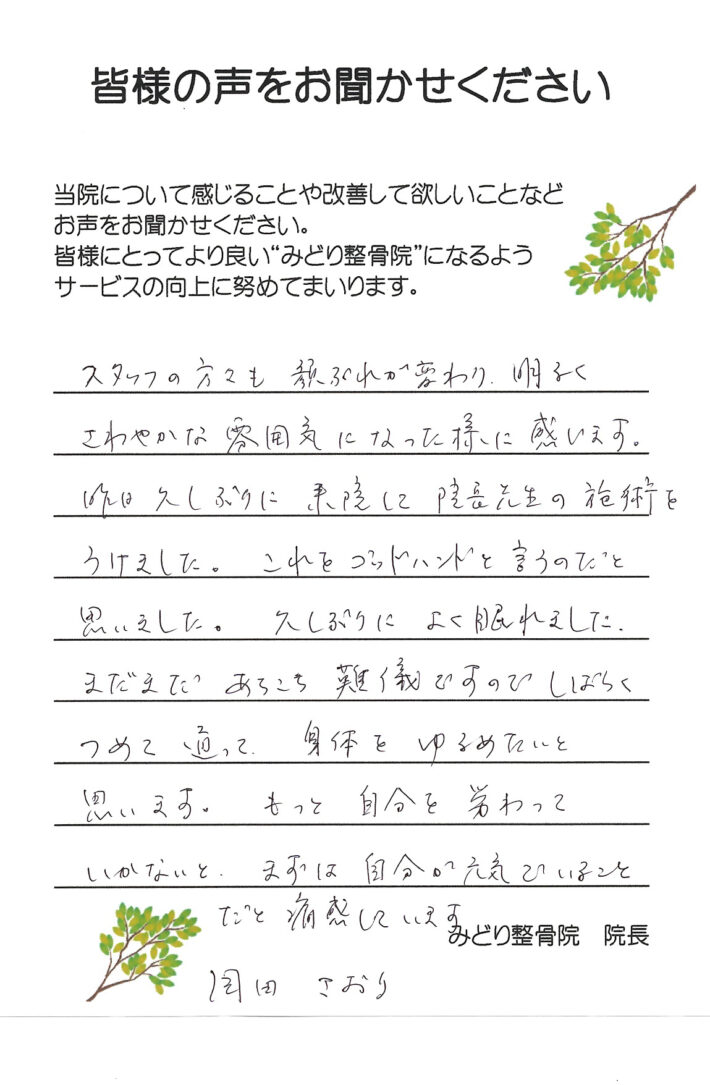 皆様の声をお聞かせください
当院について感じることや改善して欲しいことなど
お声をお聞かせください。
皆様にとってより良い“みどり整骨院”になるよう
サービスの向上に努めてまいります。
スタッフの方々も 顔ぶれが変わり、明るく
さわやかな 雰囲気になった様に感います。
昨日 久しぶりに 来院して 院長先生の 施術を
うけました。 これをゴッドハンドと言うのだと
思いました。 久しぶりに よく眠れました。
まだまだ あちこち 難儀ですので しばらく
つめて 通って、 身体を ゆるめたいと
思います。 もっと 自分を 労わって
いかないと、 まずは 自分が元気でいること
だと 痛感しています
みどり整骨院 院長
田 さおり